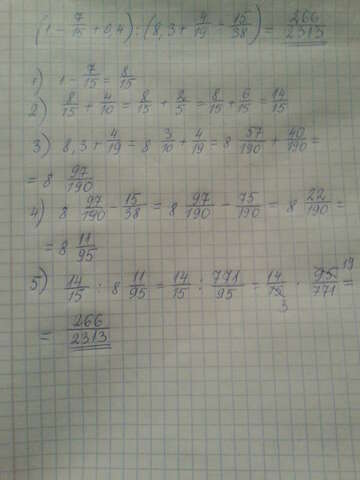 (1 - 7/15 + 0,4) : (8,3 + 4/19 - 15/38) = 266/2313
1) 1 - 7/15 = 8/15
2) 8/15 + 4/10 = 8/15 + 2/5 = 8/15 + 6/15 = 14/15
3) 8,3 + 4/19 = 8 3/10 + 4/19 = 8 57/190 + 40/190 =
= 8 97/190
4) 8 97/190 - 15/38 = 8 97/190 - 75/190 = 8 22/190 =
= 8 11/95
5) 14/15 : 8 11/95 = 14/15 : 771/95 = 14/15 3 · 95/771 19 =
= 266/2313